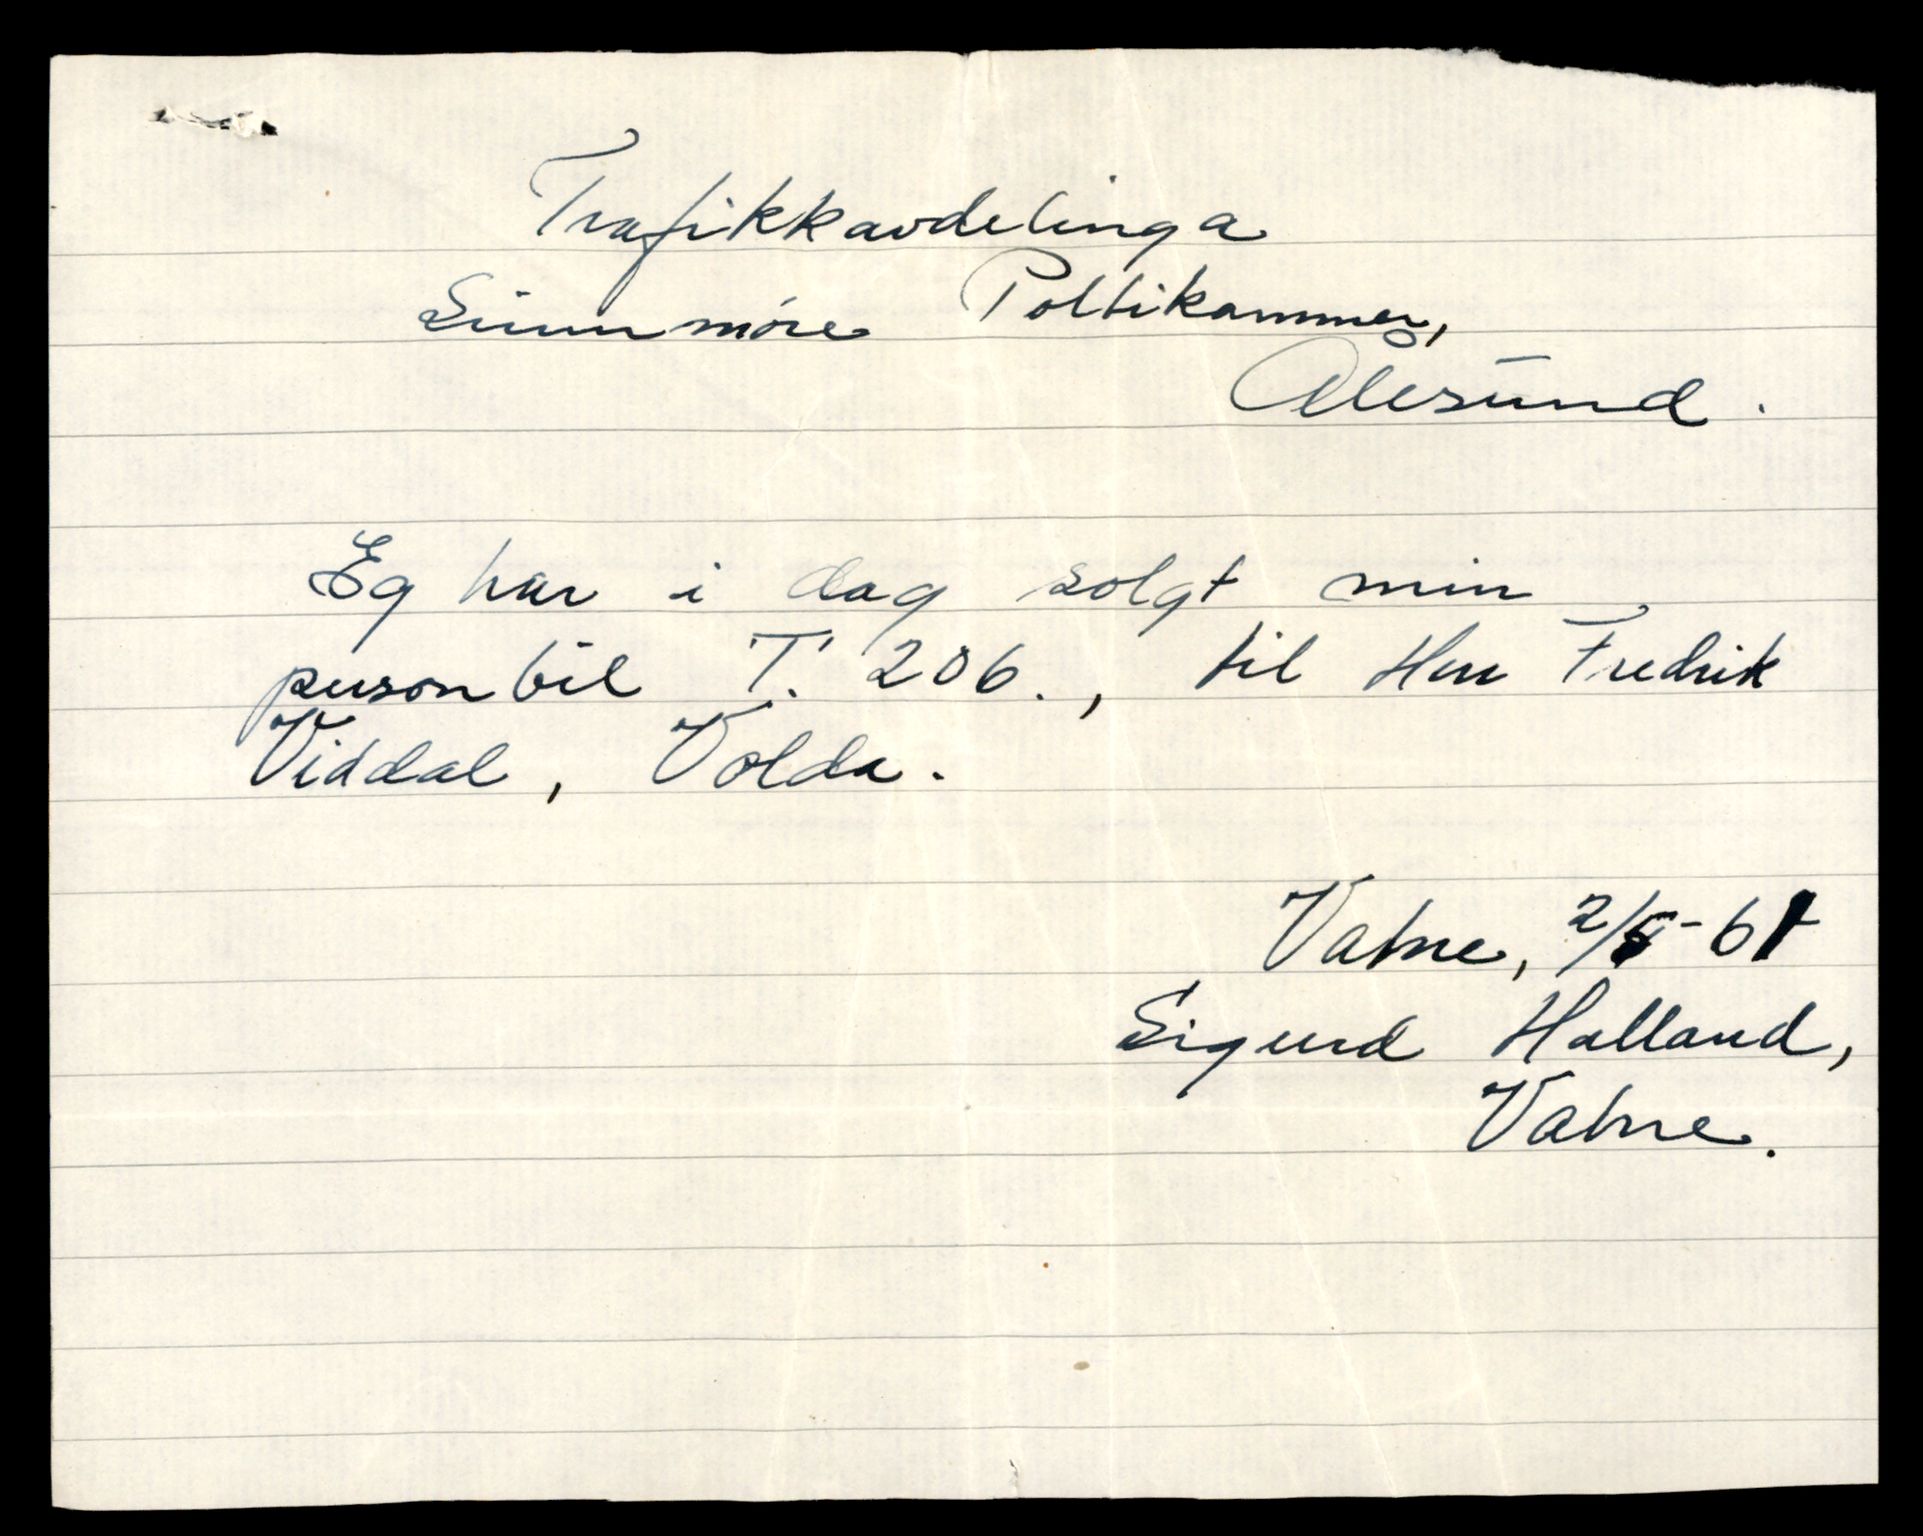 Trafikkavdelinga
Sunnmöre Politikammer,
Ålesund.
Eg har i dag solgt min
personbil T. 206., til Herr Fredrik
Viddal, Volda.
Vatne, 2/5-61
Sigurd Halland,
Vatne.